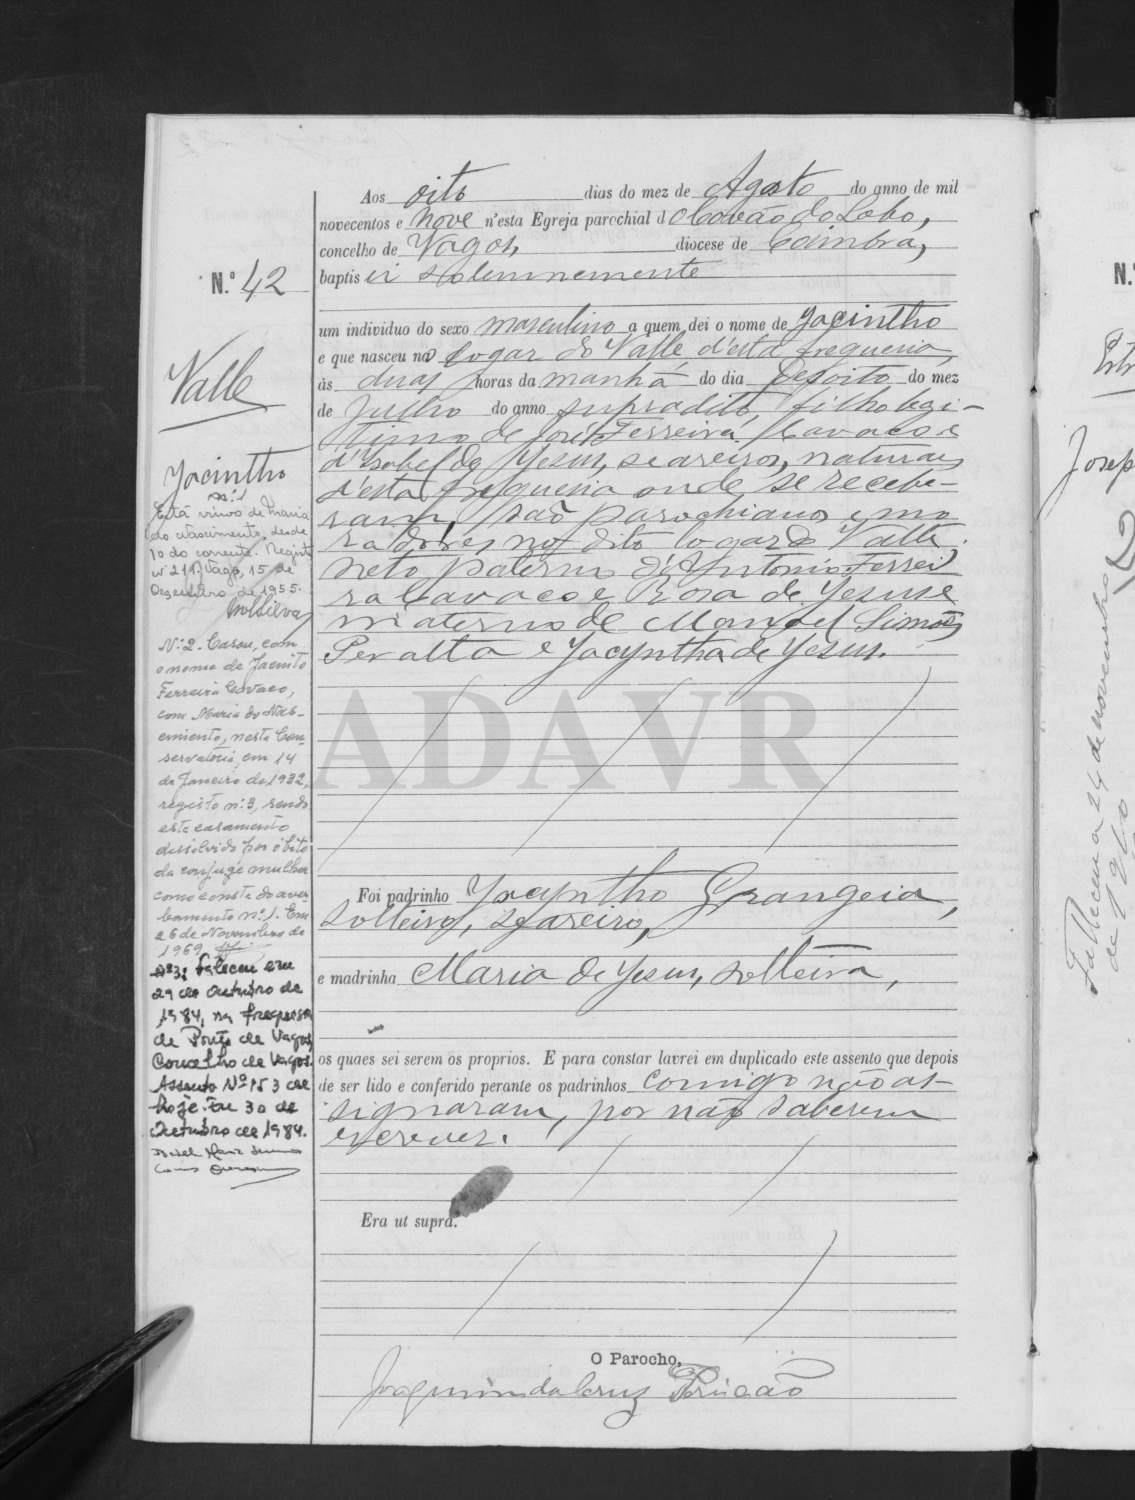 Aos oito dias do mez de Agosto do anno de mil
novecentos e nove n'esta Egreja parochial d Covão do Lobo,
concelho de Vagos, diocese de Coimbra,
baptisei solemnemente
N.º 42
um individuo do sexo masculino a quem dei o nome de Jacintho
e que nasceu no logar do Valle, d'esta freguesia,
ás duas horas da manhã do dia desoito do mez
de Julho do anno supradito, filho legi-
timo de José Ferreira Cavaco e
d'Isabel de Jesus, seareiros, naturaes
d'esta freguesia onde se recebe-
ram, são parochianos e mo
radores no dito logar do Valle.
neto paterno de Antonio Ferrei
ra Cavaco e Rosa de Jesus e
materno de Manoel Simões
Peralta e Jacyntha de Jesus.
ADAVR
Foi padrinho Jacyntho Grangeia,
solteiro, seareiro,
e madrinha Maria de Jesus, solteira,
os quaes sei serem os proprios. E para constar lavrei em duplicado este assento que depois
de ser lido e conferido perante os padrinhos comigo não as-
signaram, por não saberem
escrever.
Era ut supra.
O Parocho,
Joaquim da Cruz
Valle
Jacintho
nº 1
Está viuvo de Maria
do Nascimento, desde
10 do corrente. Registo
nº 211. Vagos, 15 de
Dezembro de 1955.
Nº 2. Casou, com
o nome de Jacinto
Ferreira Covaco,
com Maria do Nas-
cimento, nesta Con-
servatória, em 14
de Janeiro de 1932,
registo nº 3, sendo
este casamento
dissolvido por óbito
da conjuge mulher
como consta do aver-
bamento nº 1. Em
26 de Novembro de
1969
Nº 3: Faleceu em
29 de Outubro de
1984, na freguesia
de Ponte de Vagos,
Concelho de Vagos.
Assento Nº 153 de
hoje. Em 30 de
Outubro de 1984.
N.º
Josep
Falleceu a 24 de novembro
de 1910